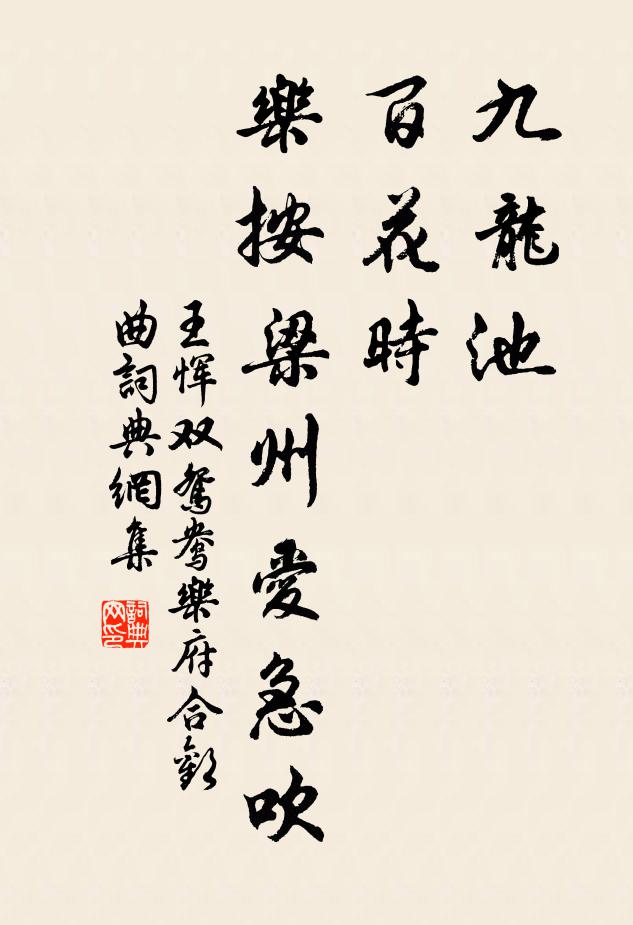 九龍池
百花時
樂按梁州愛急吹
王惲双鴛鴦樂府合歡
曲詞典網集
詞典网印